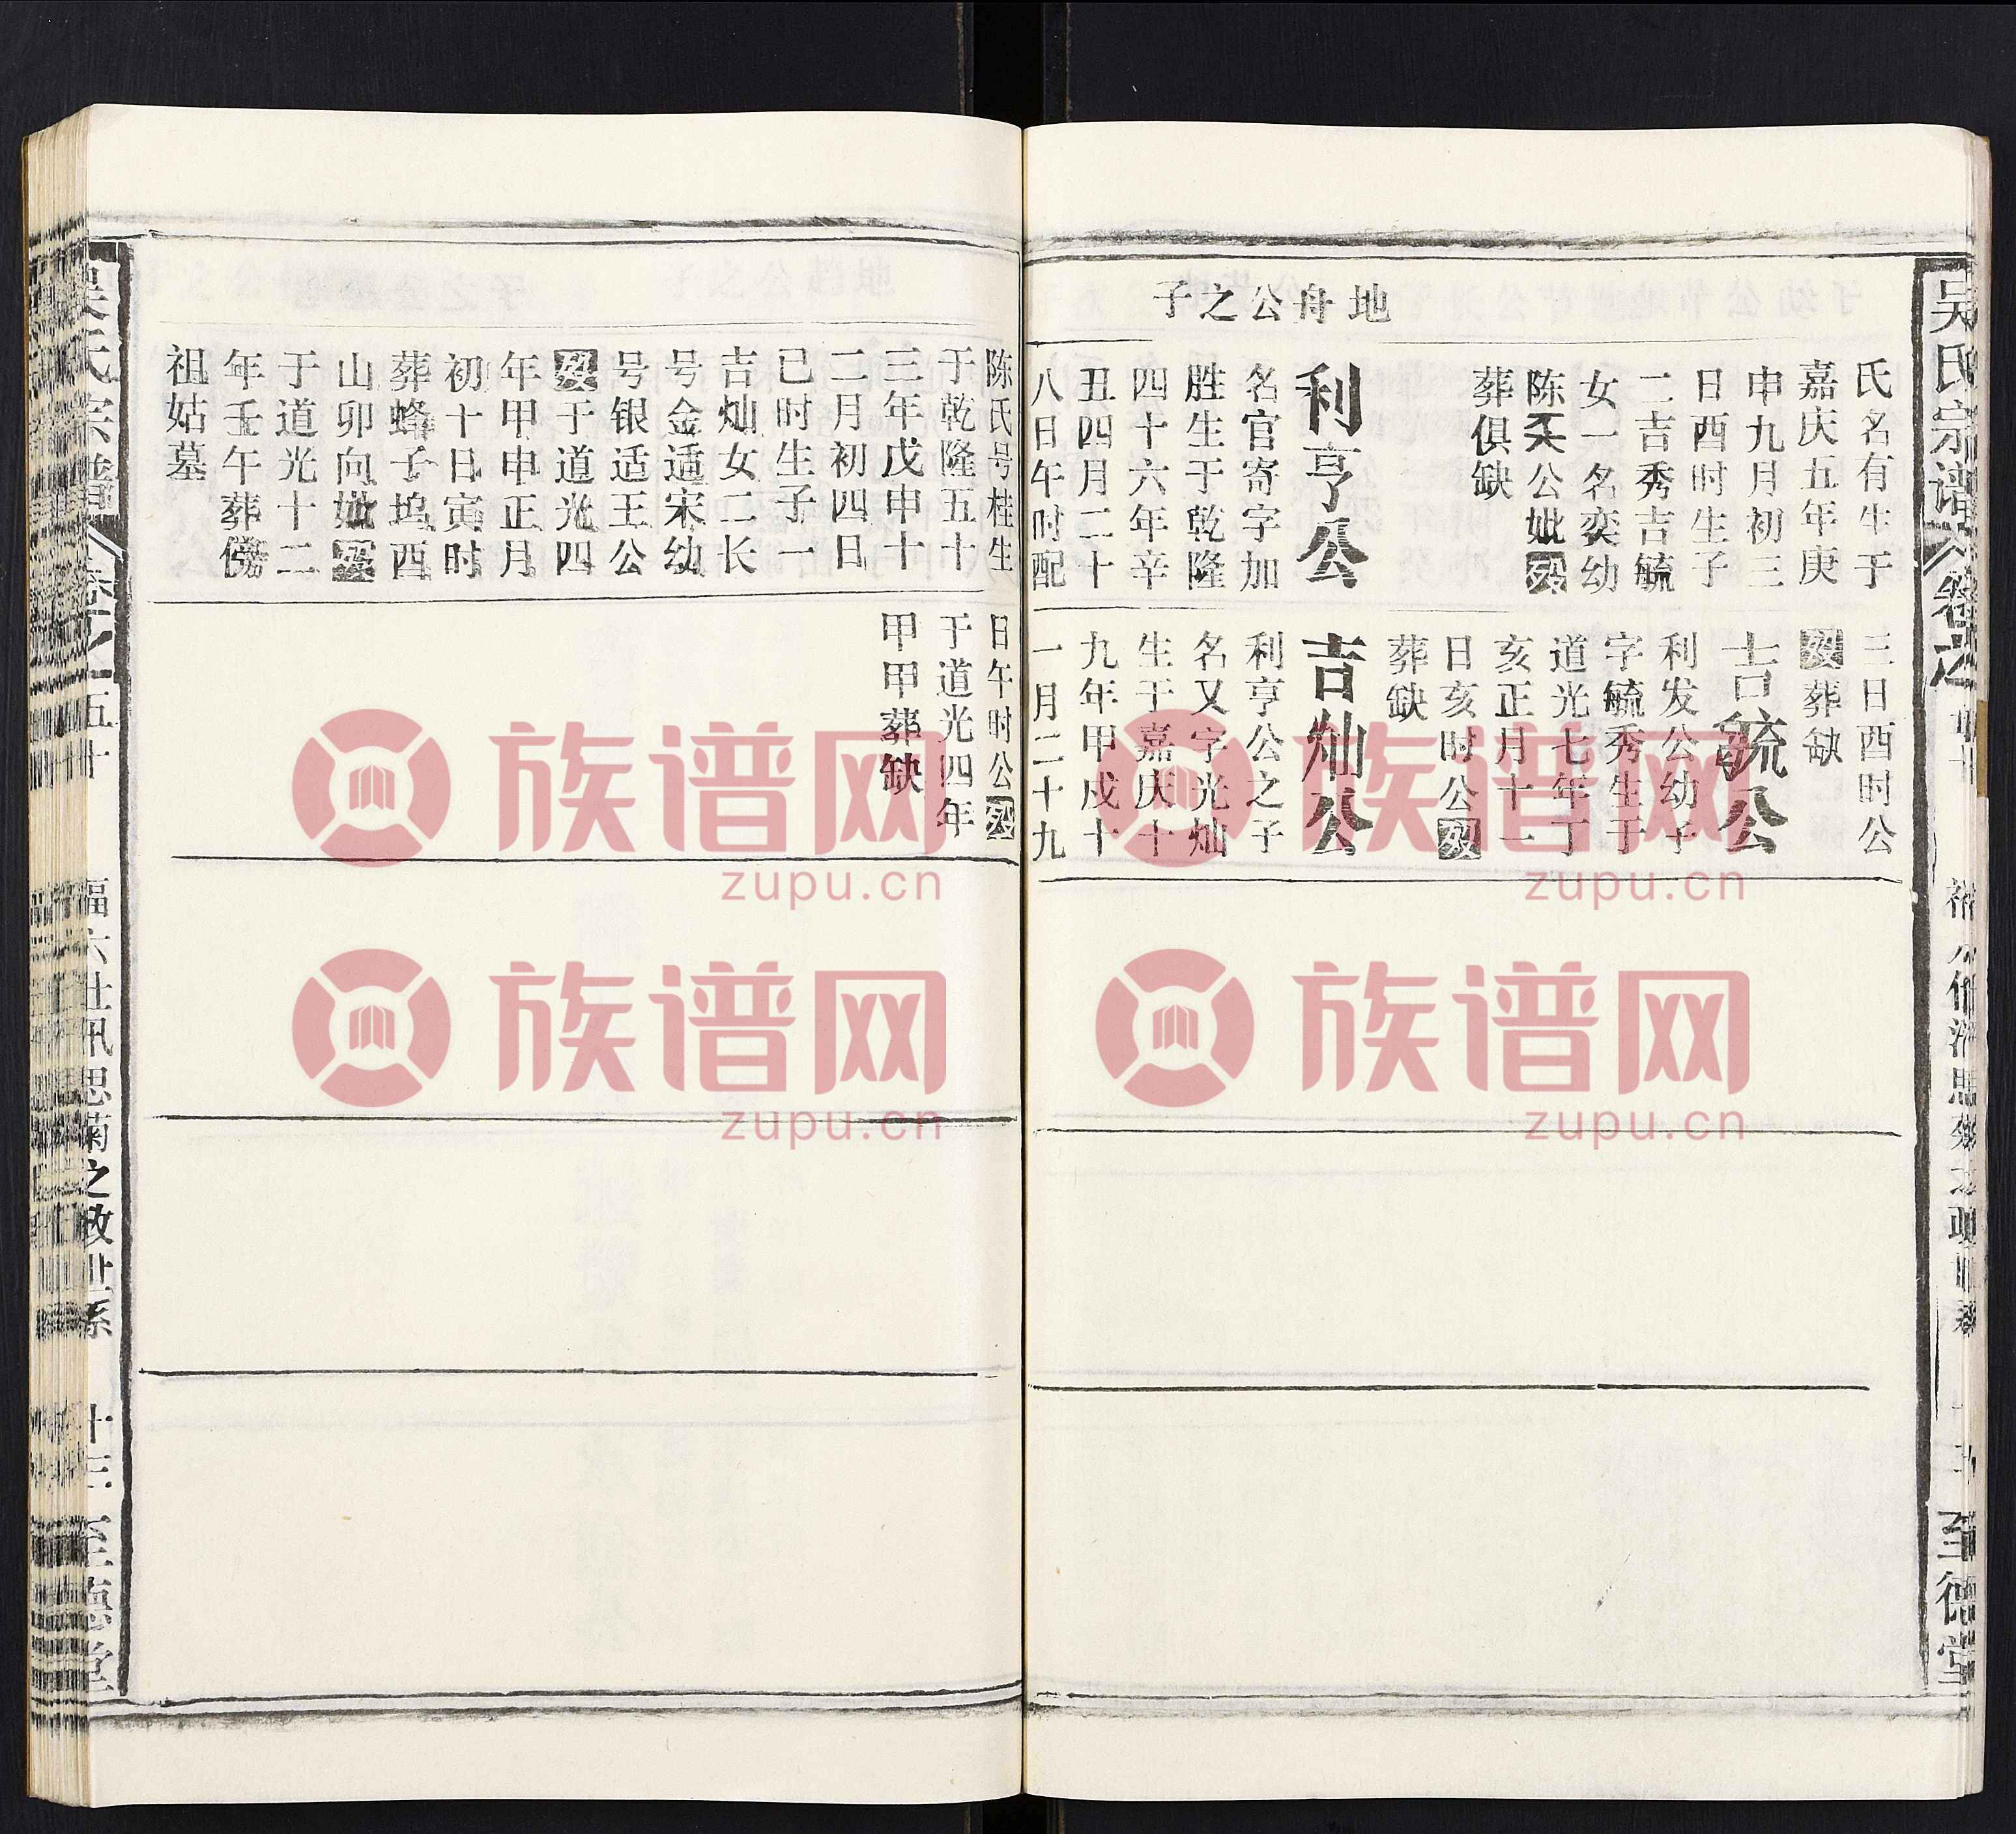 吴氏宗谱
卷之
至德堂
地舟公之子
氏名有生于
嘉庆五年庚
申九月初三
日酉时生子
二吉秀吉毓
女一名奕幼
陈夭公妣殁
葬俱缺
利亨公
名官寄字加
胜生于乾隆
四十六年辛
丑四月二十
八日午时配
三日酉时公
殁葬缺
吉毓公
利发公幼子
字毓秀生于
道光七年丁
亥正月十一
日亥时公殁
葬缺
吉灿公
利亨公之子
名又字光灿
生于嘉庆十
九年甲戌十
一月二十九
陈氏号桂生
于乾隆五十
三年戊申十
二月初四日
巳时生子一
吉灿女二长
号金适宋幼
号银适王公
殁于道光四
年甲申正月
初十日寅时
葬蜂子坞酉
山卯向妣殁
于道光十二
年壬午葬傍
祖姑墓
日午时公殁
于道光四年
甲甲葬缺
吴氏宗谱
五十
至德堂
族谱网
zupu.cn
族谱网
zupu.cn
族谱网
zupu.cn
族谱网
zupu.cn